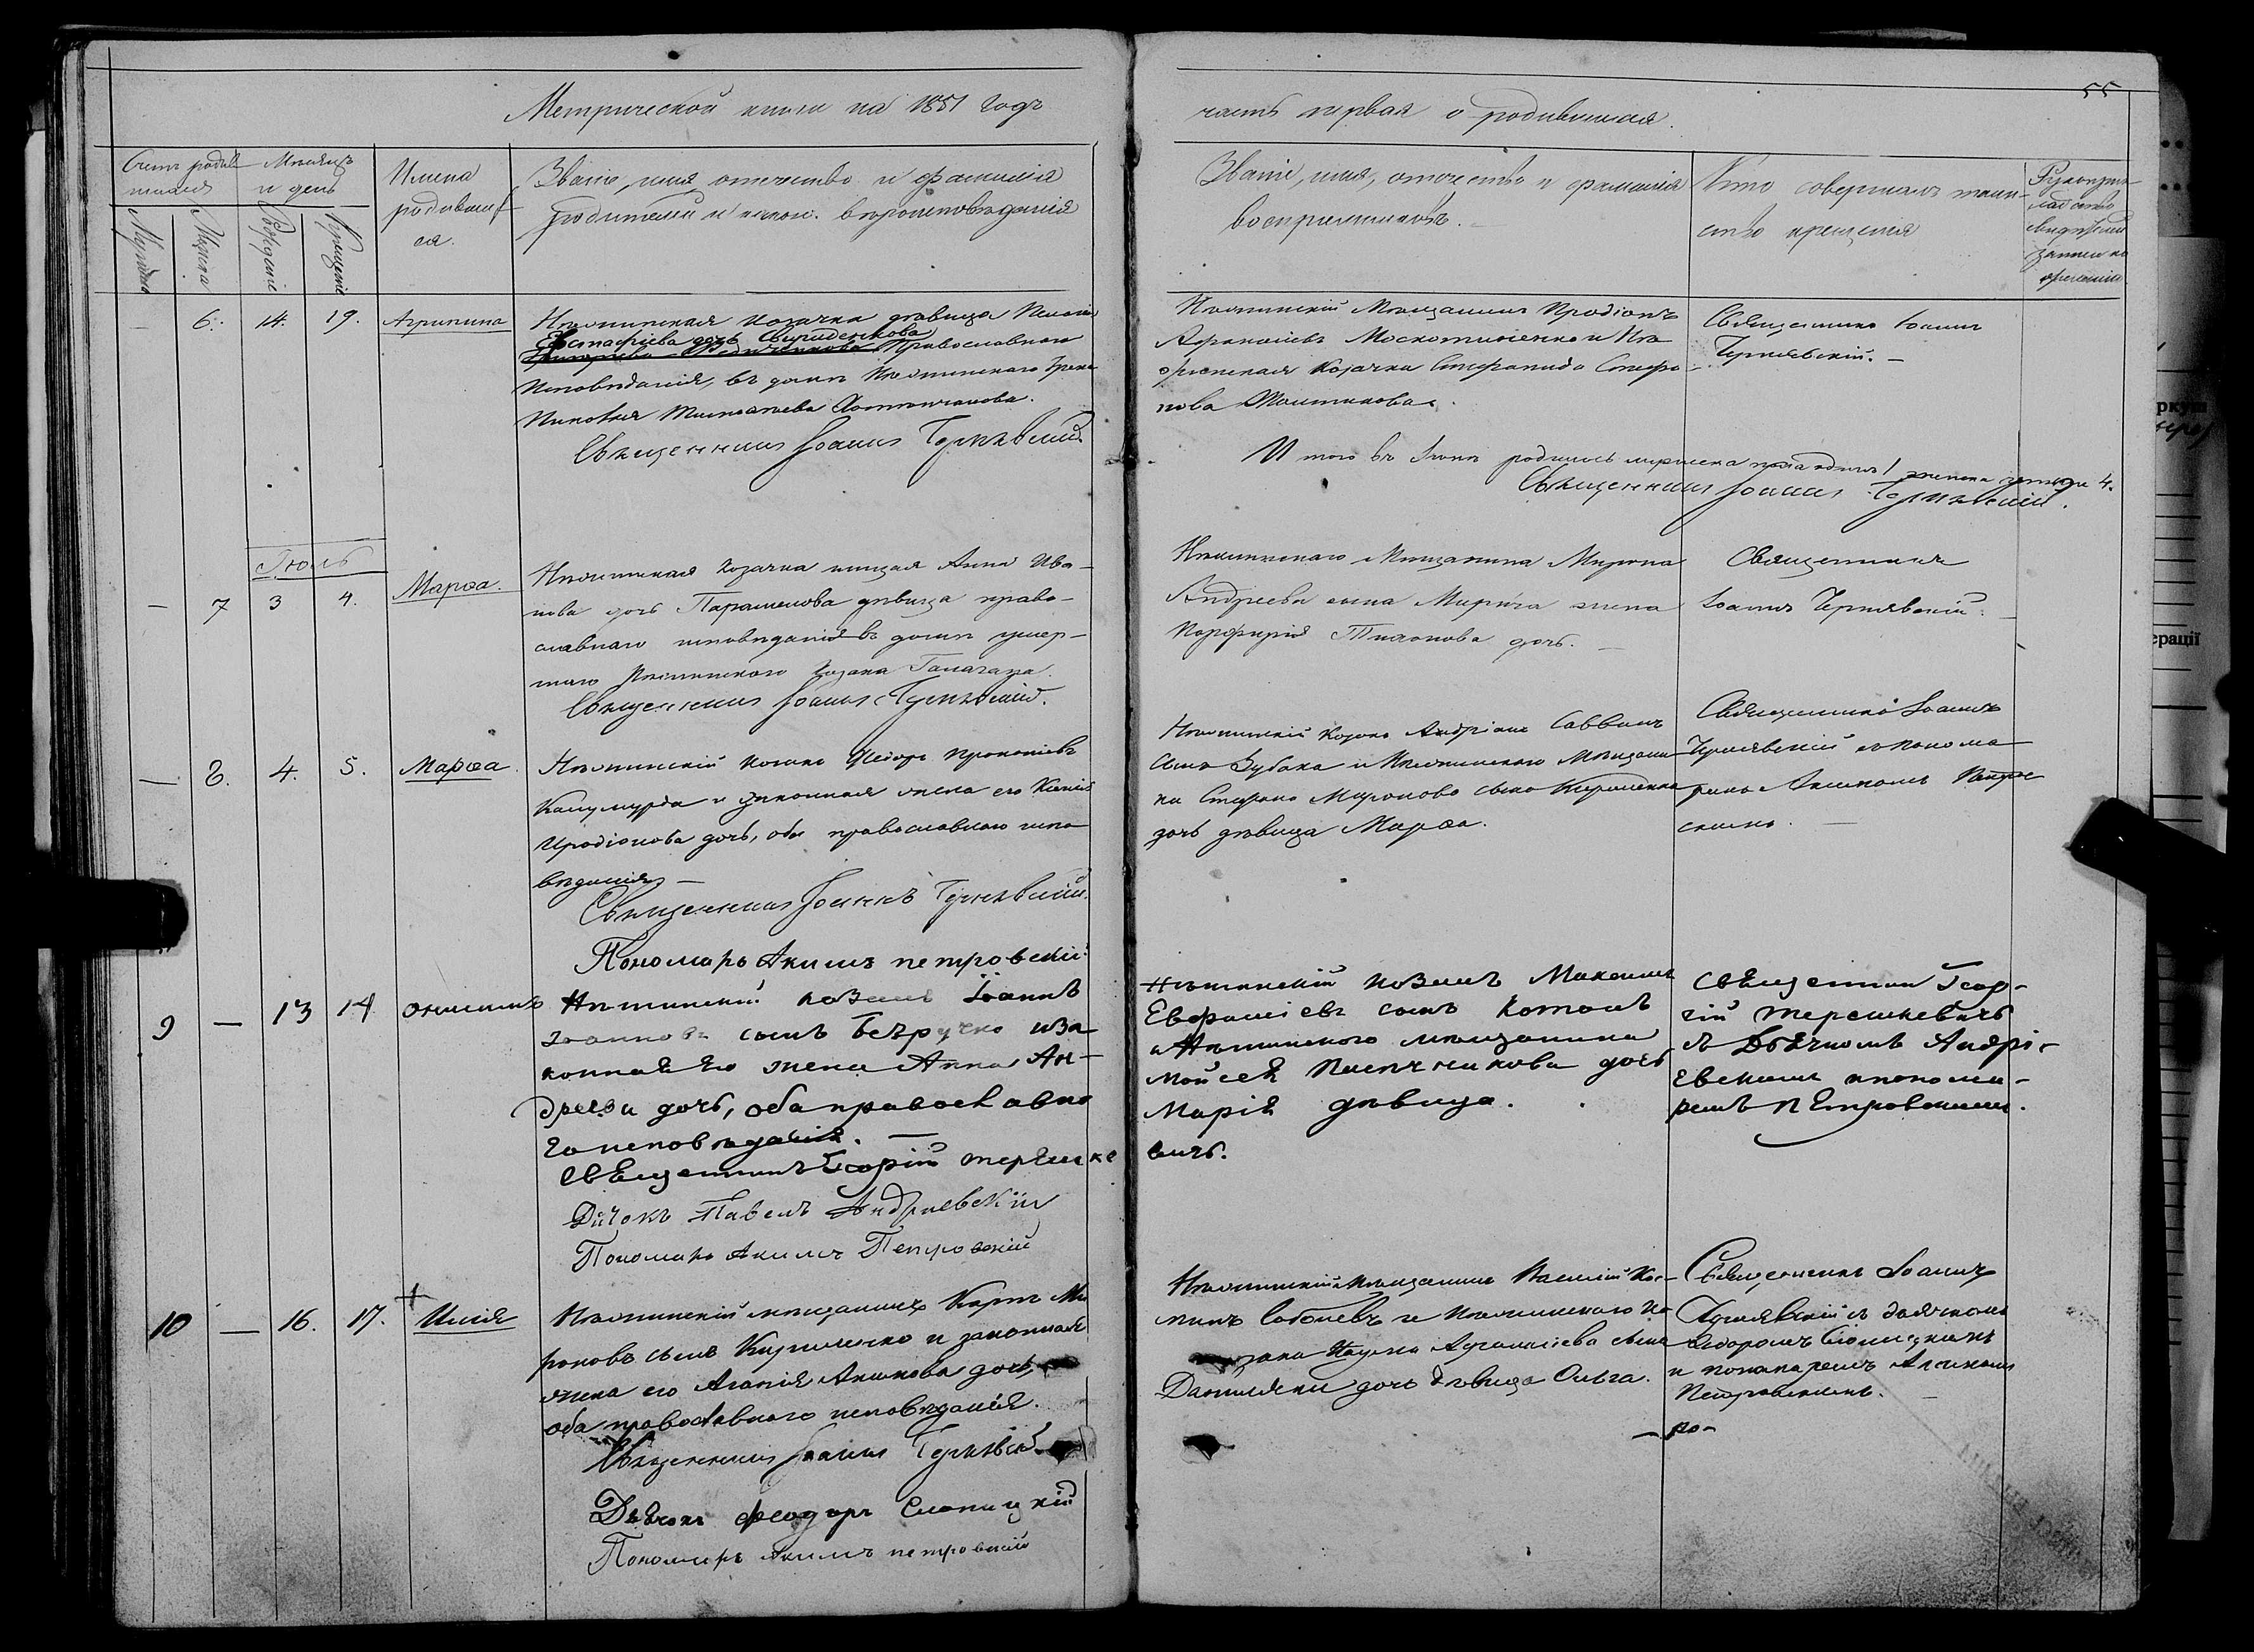 Метрической книги на 1851 годъ
часть первая о родившихся.
55
Счетъ родив
шихся
Мѣсяцъ
и день
Имена
родивших
ся.
Званіе, имя, отечество и фамилія
родителей и какого вѣроисповѣданія
Званіе, имя, отечество и фамилія
воспріемниковъ.
Кто совершалъ таин-
ство крещенія
Рукоприк-
ладство
свидѣтелей
записи по
желанію
Мужеска
Женска
Рожденіе
Крещеніе
— 6. 14. 19. Агрипина
Нѣжинская козачка дѣвица
Евстафіева дочь Свириденкова
Православнаго
Исповѣданія, въ домѣ Нѣжинскаго Грека
Священникъ Іоаннъ Чернявскій
Нѣжинскій Мѣщанинъ Иродіонъ
козачка Стефанида Стефа-
нова
Священникъ Іоаннъ
Чернявскій. —
Итого въ Іюнѣ родилось мужеска пола одинъ 1 женска четыре 4.
Священникъ Іоаннъ Чернявскій.
Іюль
— 7 3 4. Марѳа.
Нѣжинская козачка нищая Анна Ива-
нова дочь Парашенова дѣвица право-
славнаго исповѣданія въ домѣ умер-
шаго Нѣжинскаго козака Галагана.
Священникъ Іоаннъ Чернявскій.
Нѣжинскаго Мѣщанина Мирона
Андреева сына Мирича жена
Порфирія Тихонова дочь. —
Священникъ
Іоаннъ Чернявскій.
— 8. 4. 5. Марѳа.
Нѣжинскій козакъ Ѳедоръ Прокопіевъ
и законная жена его Ксенія
Иродіонова дочь, оба православнаго испо-
вѣданія —
Священникъ Іоаннъ Чернявскій.
Пономарь Акимъ Петровскій
Нѣжинскій козакъ Андріанъ Саввинъ
сынъ Зубаха и Нѣжинскаго Мѣщани
на Стефана Миронова сына Кириленка
дочь дѣвица Марѳа.
Священникъ Іоаннъ
Чернявскій съ понома
ремъ Акимомъ Петров
скимъ. —
9 — 13 14 Онисимъ
Нѣжинскій козакъ Іоаннъ
Іоанновъ сынъ Безручко иза
конная его жена Анна Ан-
дреева дочь, оба православна
го исповѣданія. —
Священникъ Георгій Терешке
вичъ.
Дячокъ Павелъ Андріевскій
Пономарь Акимъ Петровскій
Нѣжинскій козакъ Максимъ
Евфиміевъ сынъ Котокъ
и Нѣжинского мещанина
Мойсея Пасечникова дочь
Марія дѣвица.
Священникъ Геор-
гій Терешкевичъ
съ Дьячкомъ Андрі-
евскимъ ипонома-
ремъ Петровскимъ.
10 — 16. 17. Илія
Нѣжинскій мѣщанинъ Карпъ Ми
роновъ сынъ Кириленко и законная
жена его Агапія Акимова дочь,
оба православного исповѣданія.
Священникъ Іоаннъ Чернявскій
Дьячокъ Феодоръ Слопицкій
Пономарь Акимъ Петровскій
Нѣжинскій Мѣщанинъ Василій
и Нѣжинскаго ко
зака Наума Афанасіева сына
дочь дѣвица Ольга.
Священникъ Іоаннъ
Чернявскій съ дьячкомъ
Ѳедоромъ Слопицкимъ
и понамаремъ Акимомъ
Петровскимъ. —
— ро-